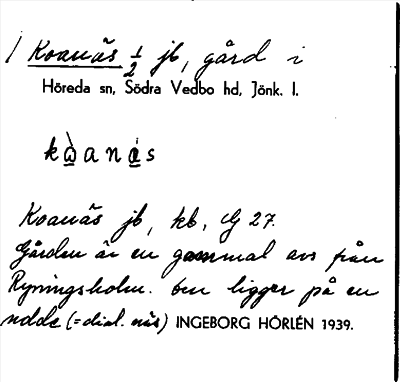 / Koanäs ½ jb, gård i
Höreda sn, Södra Vedbo hd, Jönk. l.
kòanäs
Koanäs jb, kb, G 27.
Gården är en gammal avs från
Ryningsholm. Den ligger på en
udde (= dial. näs) INGEBORG HÖRLÉN 1939.